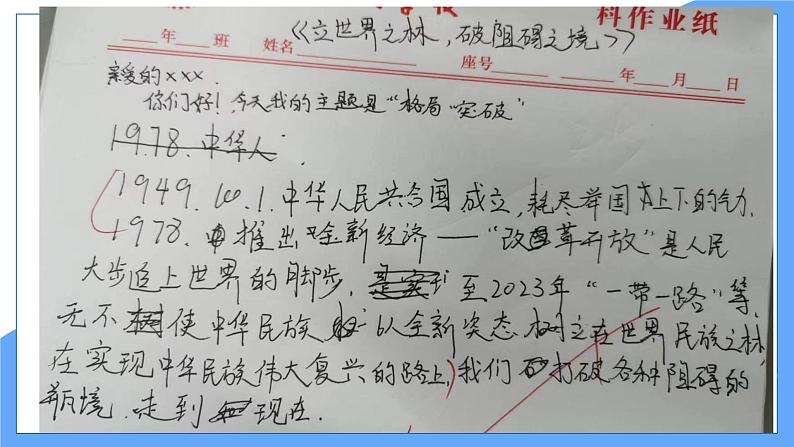 《立世界之林，破阻碍之境》
科作业纸
年 班 姓名 座号 年 月 日
亲爱的xxx.
你们好！今天我的主题是“格局“突破”
1978.中华人
1949.10.1.中华人民共合国成立，耗尽举国上下的气力.
1978.推出全新经济——“改革开放”是人民
大步追上世界的脚步，至2023年“一带一路”等，
无不使中华民族以全新姿态树立在世界民族之林，
在实现中华民族伟大复兴的路上，我们打破各种阻碍的
瓶境.走到现在.